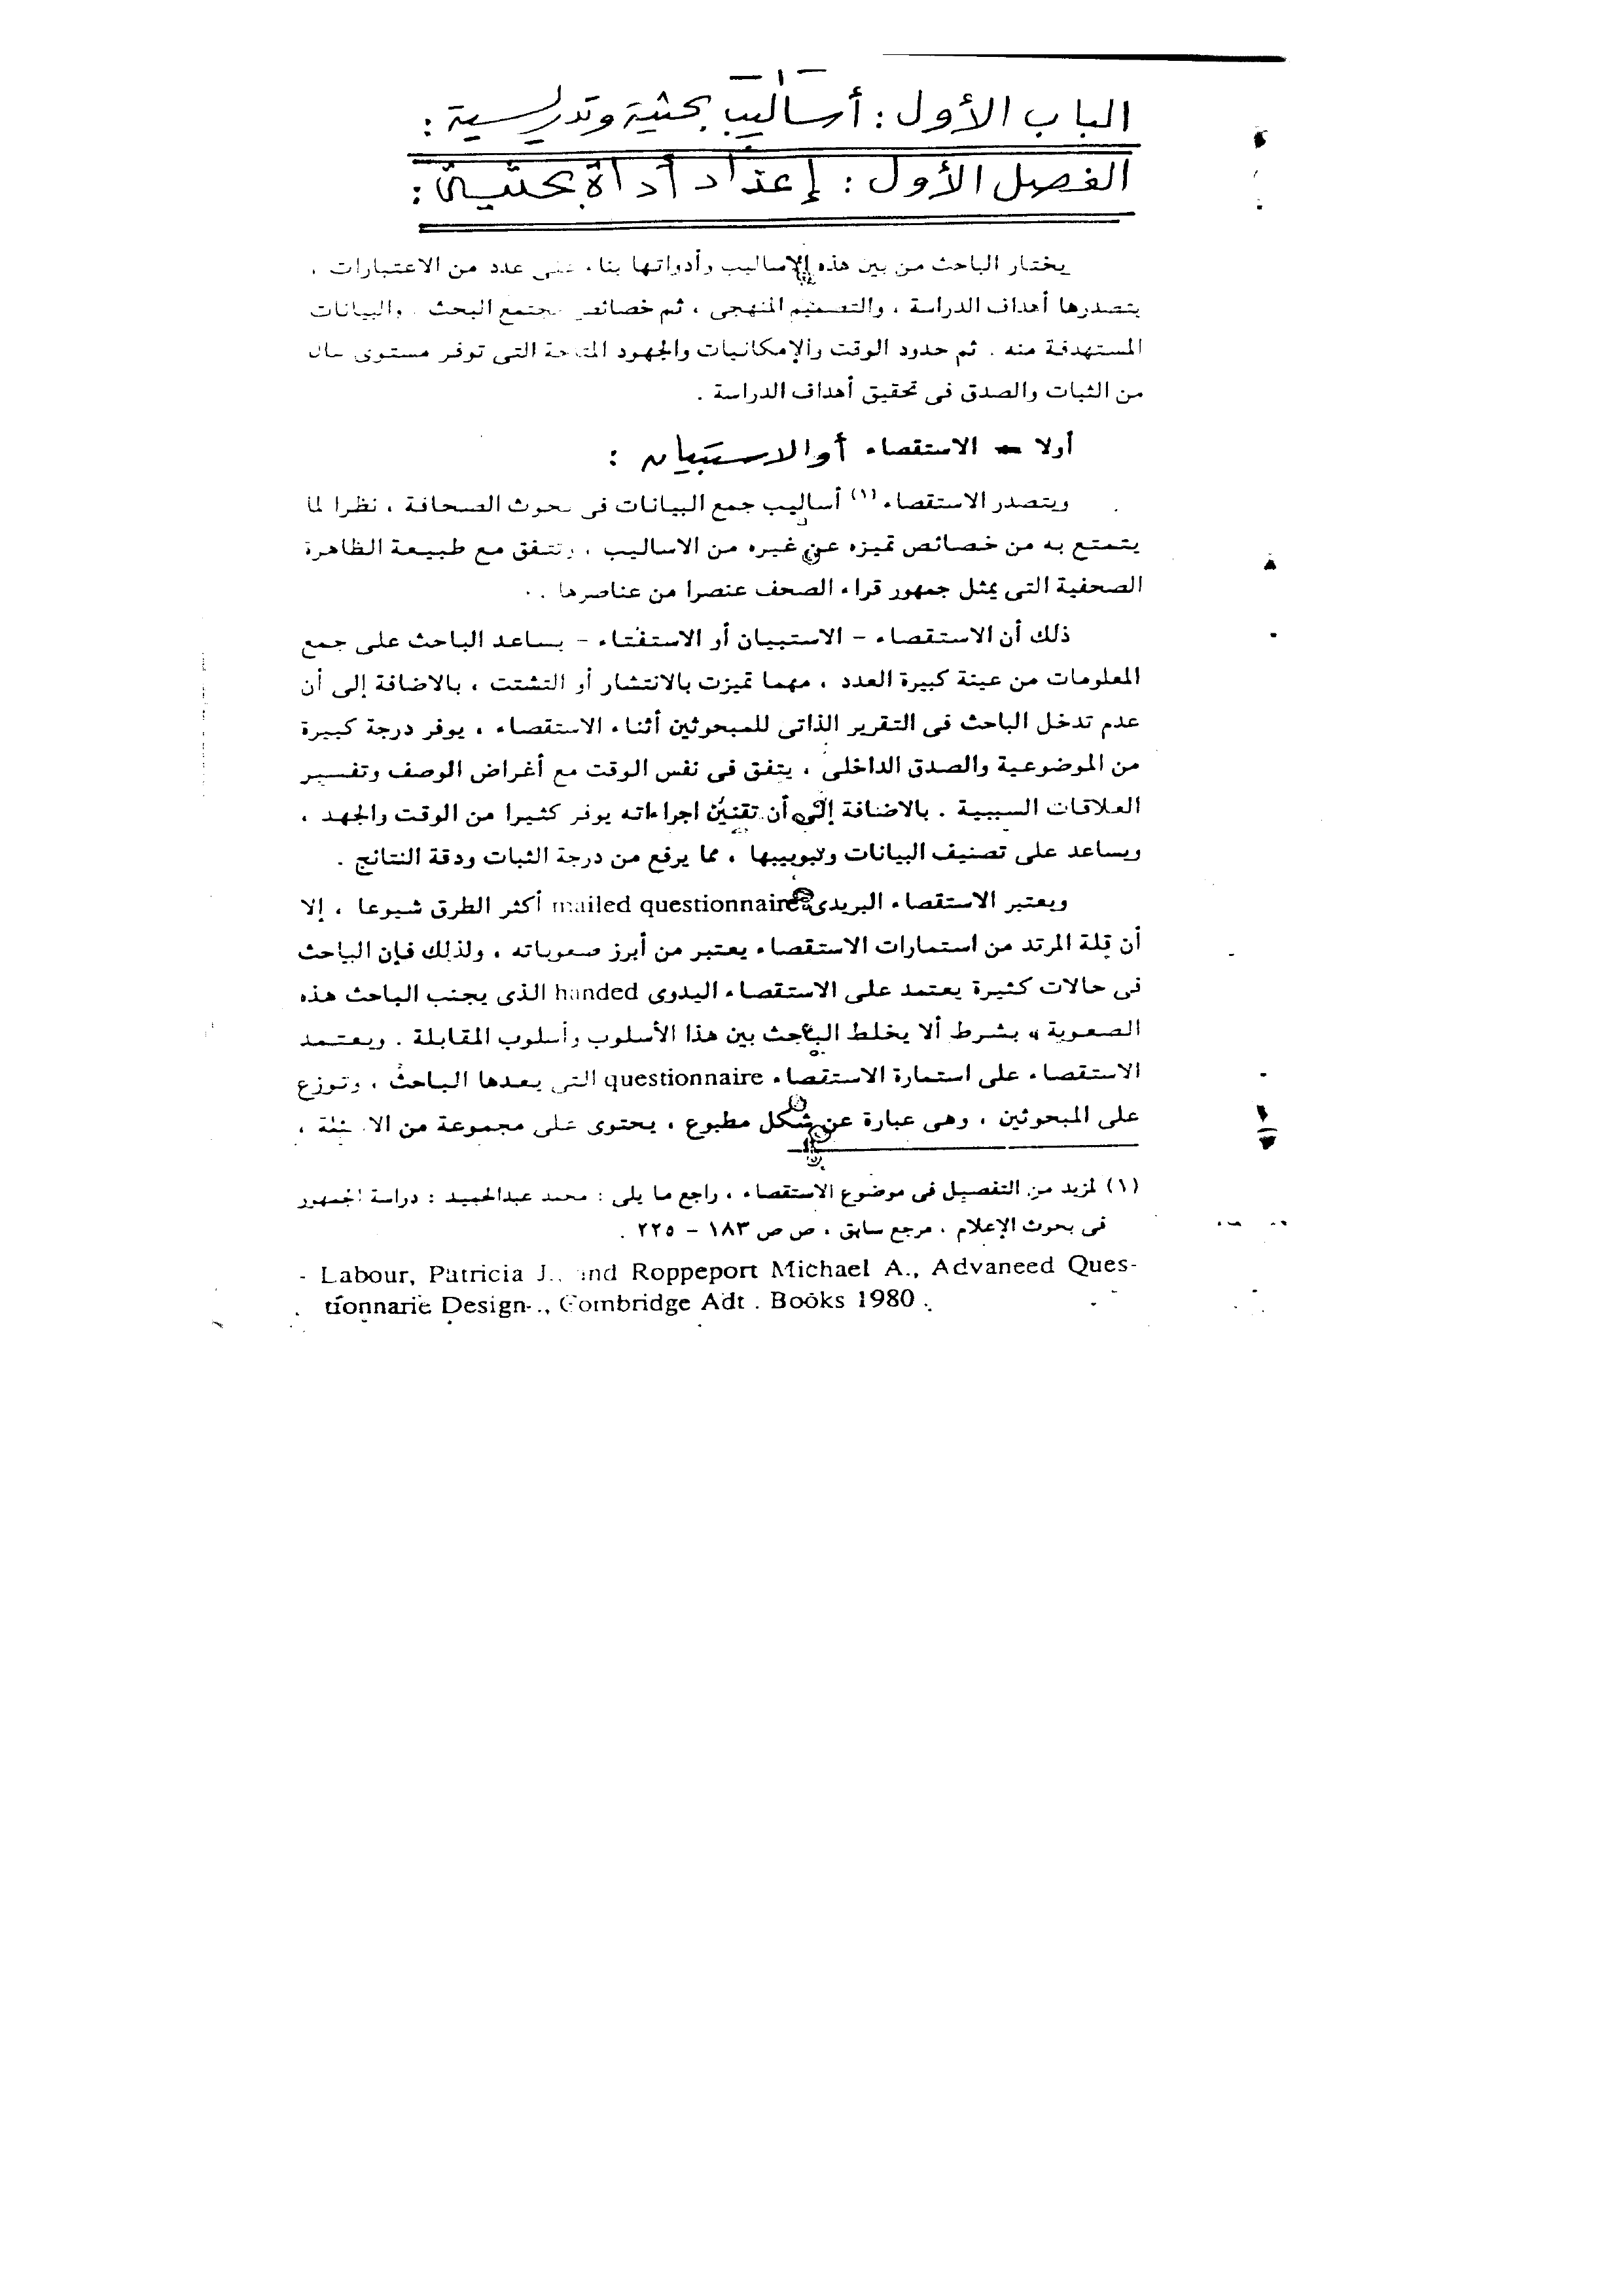 - ١ -
الباب الأول : أساليب بحثية وتدريسية :
الفصل الأول : إعداد أداة بحثية :
يختار الباحث من بين هذه الاساليب وأدواتها بناء على عدد من الاعتبارات ،
يتصدرها أهداف الدراسة ، والتصميم المنهجى ، ثم خصائص مجتمع البحث والبيانات
المستهدفة منه . ثم حدود الوقت والإمكانيات والجهود المتاحة التى توفر مستوى عال
من الثبات والصدق فى تحقيق أهداف الدراسة .
أولا - الاستقصاء أو الاستبيان :
ويتصدر الاستقصاء (١) أساليب جمع البيانات فى بحوث الصحافة ، نظرا لما
يتمتع به من خصائص تميزه عن غيره من الاساليب ، وتتفق مع طبيعة الظاهرة
الصحفية التى يمثل جمهور قراء الصحف عنصرا من عناصرها . .
ذلك أن الاستقصاء - الاستبيان أو الاستفتاء - يساعد الباحث على جمع
المعلومات من عينة كبيرة العدد ، مهما تميزت بالانتشار أو التشتت ، بالاضافة إلى أن
عدم تدخل الباحث فى التقرير الذاتى للمبحوثين أثناء الاستقصاء ، يوفر درجة كبيرة
من الموضوعية والصدق الداخلى ، يتفق فى نفس الوقت مع أغراض الوصف وتفسير
العلاقات السببية . بالاضافة إلى أن تقنين اجراءاته يوفر كثيرا من الوقت والجهد ،
ويساعد على تصنيف البيانات وتبويبها ، مما يرفع من درجة الثبات ودقة النتائج .
ويعتبر الاستقصاء البريدى mailed questionnaire أكثر الطرق شيوعا ، إلا
أن قلة المرتد من استمارات الاستقصاء يعتبر من أبرز صعوباته ، ولذلك فإن الباحث
فى حالات كثيرة يعتمد على الاستقصاء اليدوى handed الذى يجنب الباحث هذه
الصعوبة ، بشرط ألا يخلط الباحث بين هذا الأسلوب وأسلوب المقابلة . ويعتمد
الاستقصاء على استمارة الاستقصاء questionnaire التى يعدها الباحث ، وتوزع
على المبحوثين ، وهى عبارة عن شكل مطبوع ، يحتوى على مجموعة من الاسئلة ،
(١) لمزيد من التفصيل فى موضوع الاستقصاء ، راجع ما يلى : محمد عبدالحميد : دراسة الجمهور
فى بحوث الإعلام ، مرجع سابق ، ص ص ١٨٣ - ٢٢٥ .
- Labour, Patricia J., and Roppeport Michael A., Advaneed Ques-
tionnarie Design ., Combridge Adt . Books 1980 .